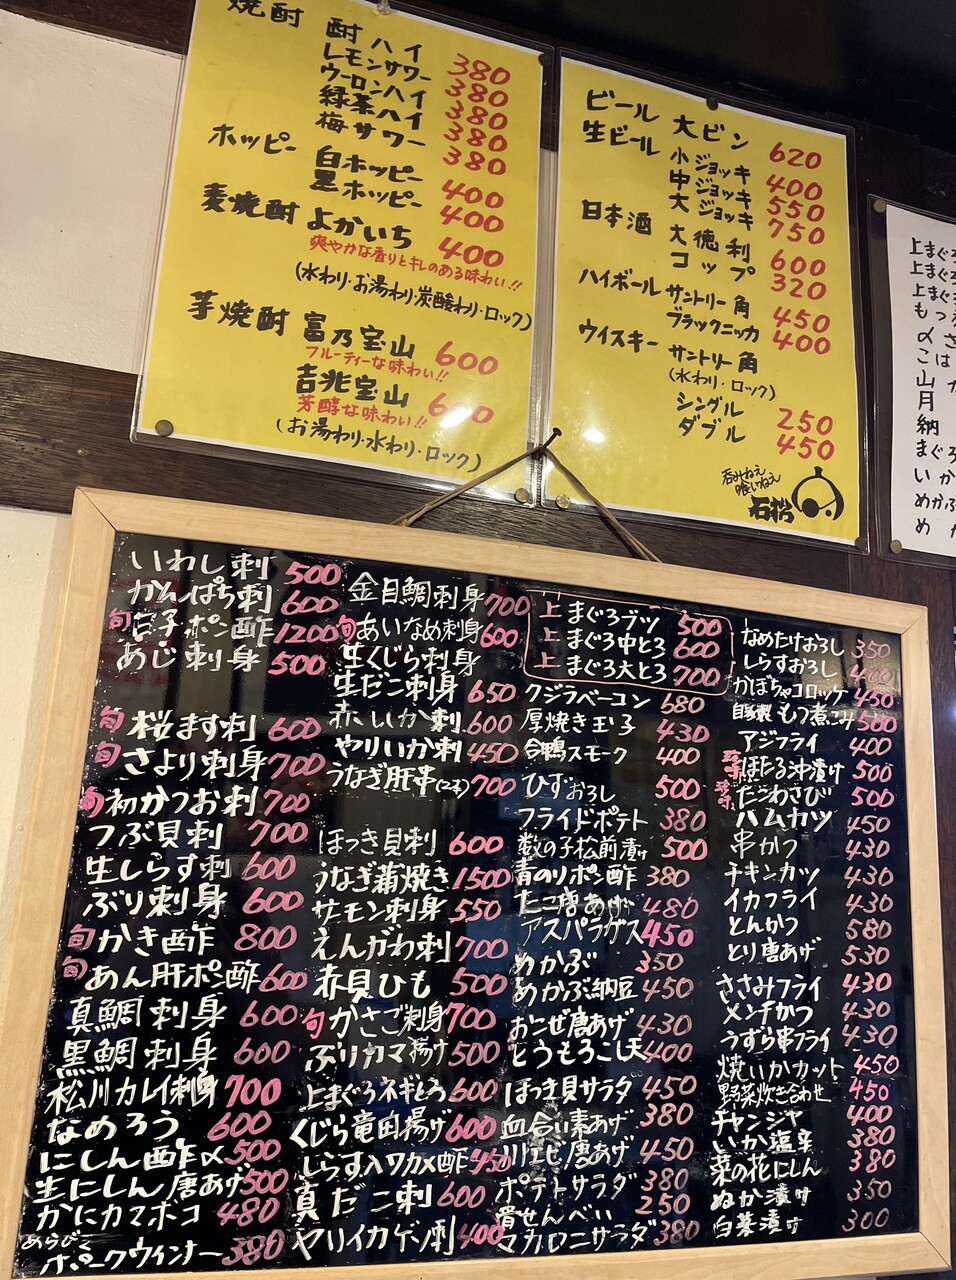 焼酎 酎ハイ 380
レモンサワー 380
ウーロンハイ 380
緑茶ハイ 380
梅サワー 380
ホッピー 白ホッピー 400
黒ホッピー 400
麦焼酎 よかいち 400
爽やかな香りとキレのある味わい!!
(水わり・お湯わり・炭酸わり・ロック)
芋焼酎 富乃宝山 600
フルーティーな味わい!!
吉兆宝山 600
芳醇な味わい!!
(お湯わり・水わり・ロック)
ビール 大ビン 620
生ビール 小ジョッキ 400
中ジョッキ 550
大ジョッキ 750
日本酒 大徳利 600
コップ 320
ハイボール サントリー角 450
ブラックニッカ 400
ウイスキー サントリー角
(水わり・ロック)
シングル 250
ダブル 450
呑みねえ
喰いねえ
石松
上まぐろ
上まぐろ
上まぐろ
もつ
〆さ
こは
山
月
納
まぐろ
いか
めかぶ
め
いわし刺 500
かんぱち刺 600
旬 白子ポン酢 1200
あじ刺身 500
旬 桜ます刺 600
旬 さより刺身 700
旬 初かつお刺 700
つぶ貝刺 700
生しらす刺 600
ぶり刺身 600
旬 かき酢 800
旬 あん肝ポン酢 600
真鯛刺身 600
黒鯛刺身 600
松川カレイ刺身 700
なめろう 600
にしん酢〆 500
生にしん唐あげ 500
かにカマホコ 480
あらびき
ポークウィンナー 380
金目鯛刺身 700
旬 あいなめ刺身 600
生くじら刺身
生だこ刺身 650
赤いか刺 600
やりいか刺 450
うなぎ肝串(2本) 700
ほっき貝刺 600
うなぎ蒲焼き 1500
サーモン刺身 550
えんがわ刺 700
赤貝ひも 500
旬 かさご刺身 700
ぶりカマ揚げ 500
上まぐろネギとろ 600
くじら竜田揚げ 600
しらすワカメ酢 450
真だこ刺 600
ヤリイカゲソ刺 400
上 まぐろブツ 500
上 まぐろ中とろ 600
上 まぐろ大とろ 700
クジラベーコン 680
厚焼き玉子 430
合鴨スモーク 400
ひずおろし 500
フライドポテト 380
数の子松前漬け 500
青のりポン酢 380
たこ唐あげ 480
アスパラグス 450
めかぶ 350
めかぶ納豆 450
おこぜ唐あげ 430
とうもろこし天 400
ほっき貝サラダ 450
血合い素あげ 380
川エビ唐あげ 450
ポテトサラダ 380
骨せんべい 250
マカロニサラダ 380
なめたけおろし 350
しらすおろし 400
かぼちゃコロッケ 450
自家製 もつ煮こみ 500
アジフライ 400
珍味 ほたる沖漬け 500
珍味 たこわさび 500
ハムカツ 450
串かつ 430
チキンカツ 430
イカフライ 430
とんかつ 580
とり唐あげ 530
ささみフライ 430
メンチかつ 430
うずら串フライ 430
焼いかカット 450
野菜炊き合わせ 450
チャンジャ 400
いか塩辛 380
菜の花にしん 380
ぬか漬け 350
白菜漬け 300